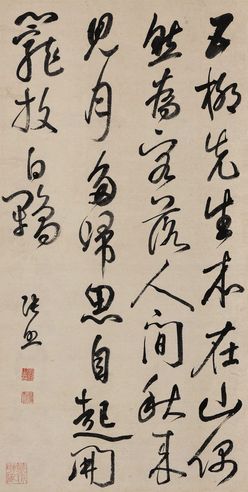 五柳先生本在山偶
然為客落人間秋來
見月多歸思自起開
籠放白鷴
張照